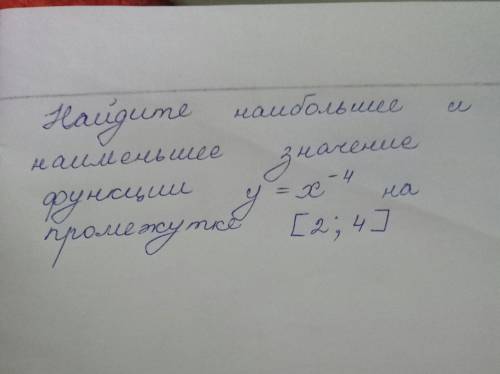 Найдите наибольшее и
наименьшее значение
функции y = x⁻⁴ на
промежутке [2; 4]